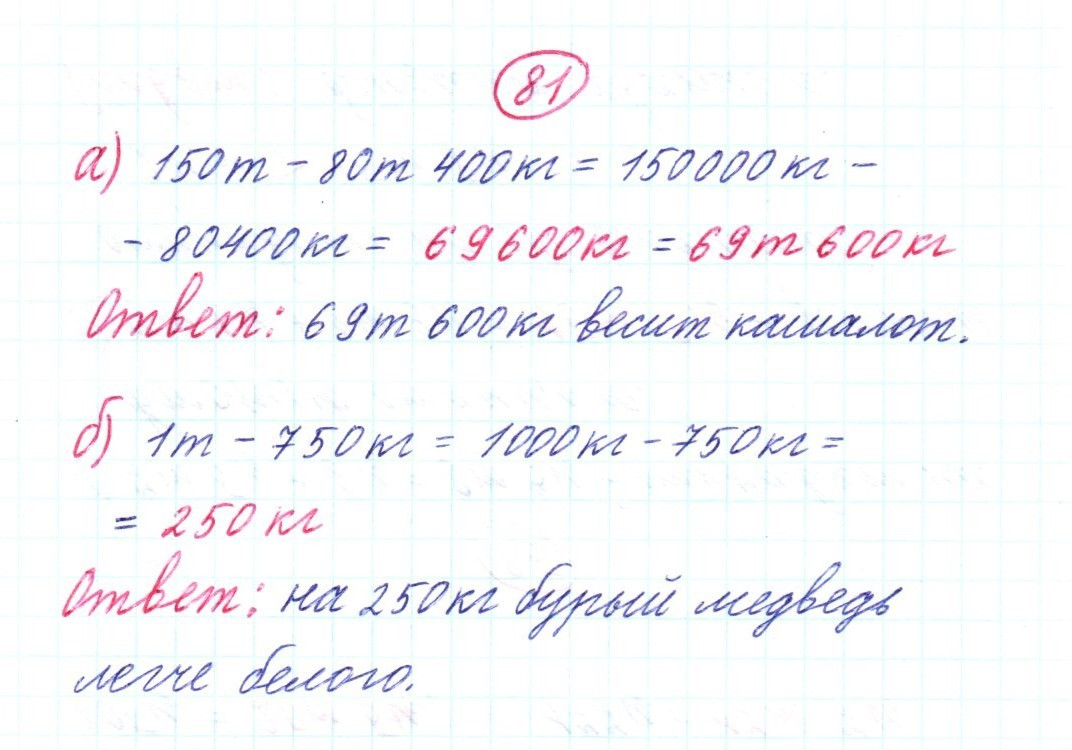 81
а) 150т - 80т 400кг = 150000кг -
- 80400кг = 69600кг = 69т 600кг
Ответ: 69т 600кг весит кашалот.
б) 1т - 750кг = 1000кг - 750кг =
= 250 кг
Ответ: на 250кг бурый медведь
легче белого.